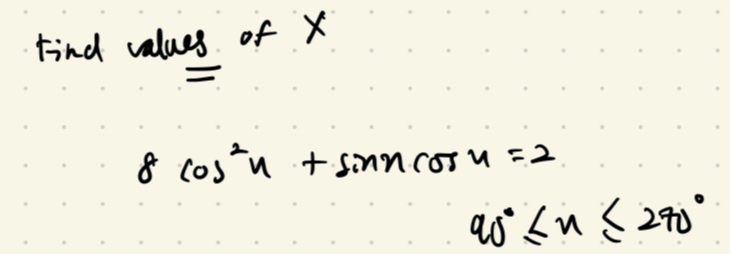 Find values of X
8 cos²x + sinx cosx = 2
90° ≤ x ≤ 270°